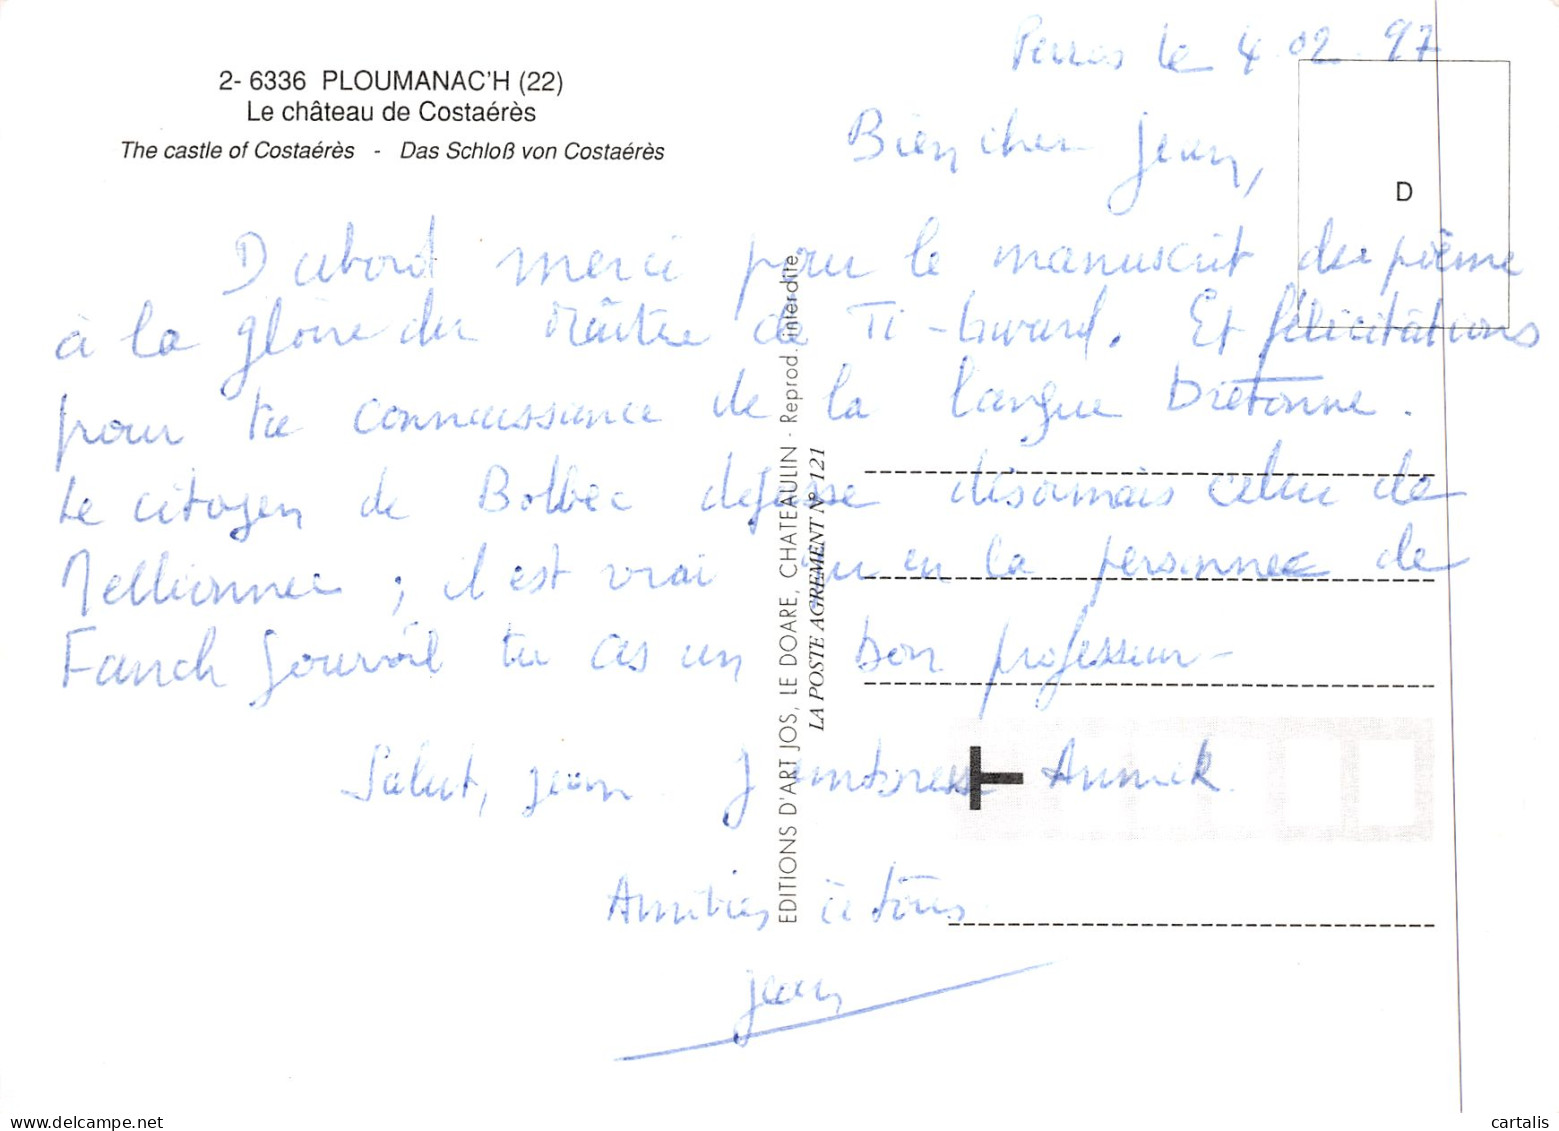 2- 6336 PLOUMANAC'H (22)
Le château de Costaérès
The castle of Costaérès - Das Schloß von Costaérès
Perros le 4.02.97
D
Bien cher Jean,
D'abord merci pour le manuscrit du poème
à la gloire du Maître de Ti- . Et félicitations
pour ta connaissance de la langue bretonne.
Le citoyen de Bolbec dépasse désormais celui de
; il est vrai qu'en la personne de
Fanch Gourvil tu as un bon professeur-
Salut, Jean J'embrasse Annick.
Amitiés à tous
Jean
EDITIONS D'ART JOS, LE DOARE, CHATEAULIN - Reprod. interdite
LA POSTE AGREMENT N° 121
www.delcampe.net
cartalis